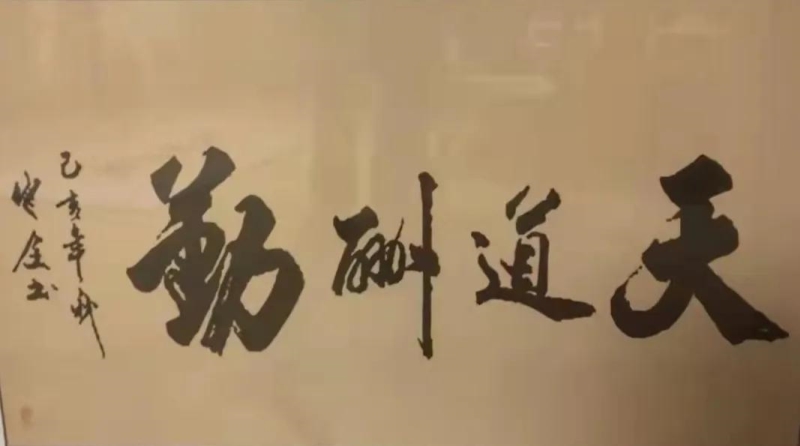 天道酬勤
己亥年秋
金书